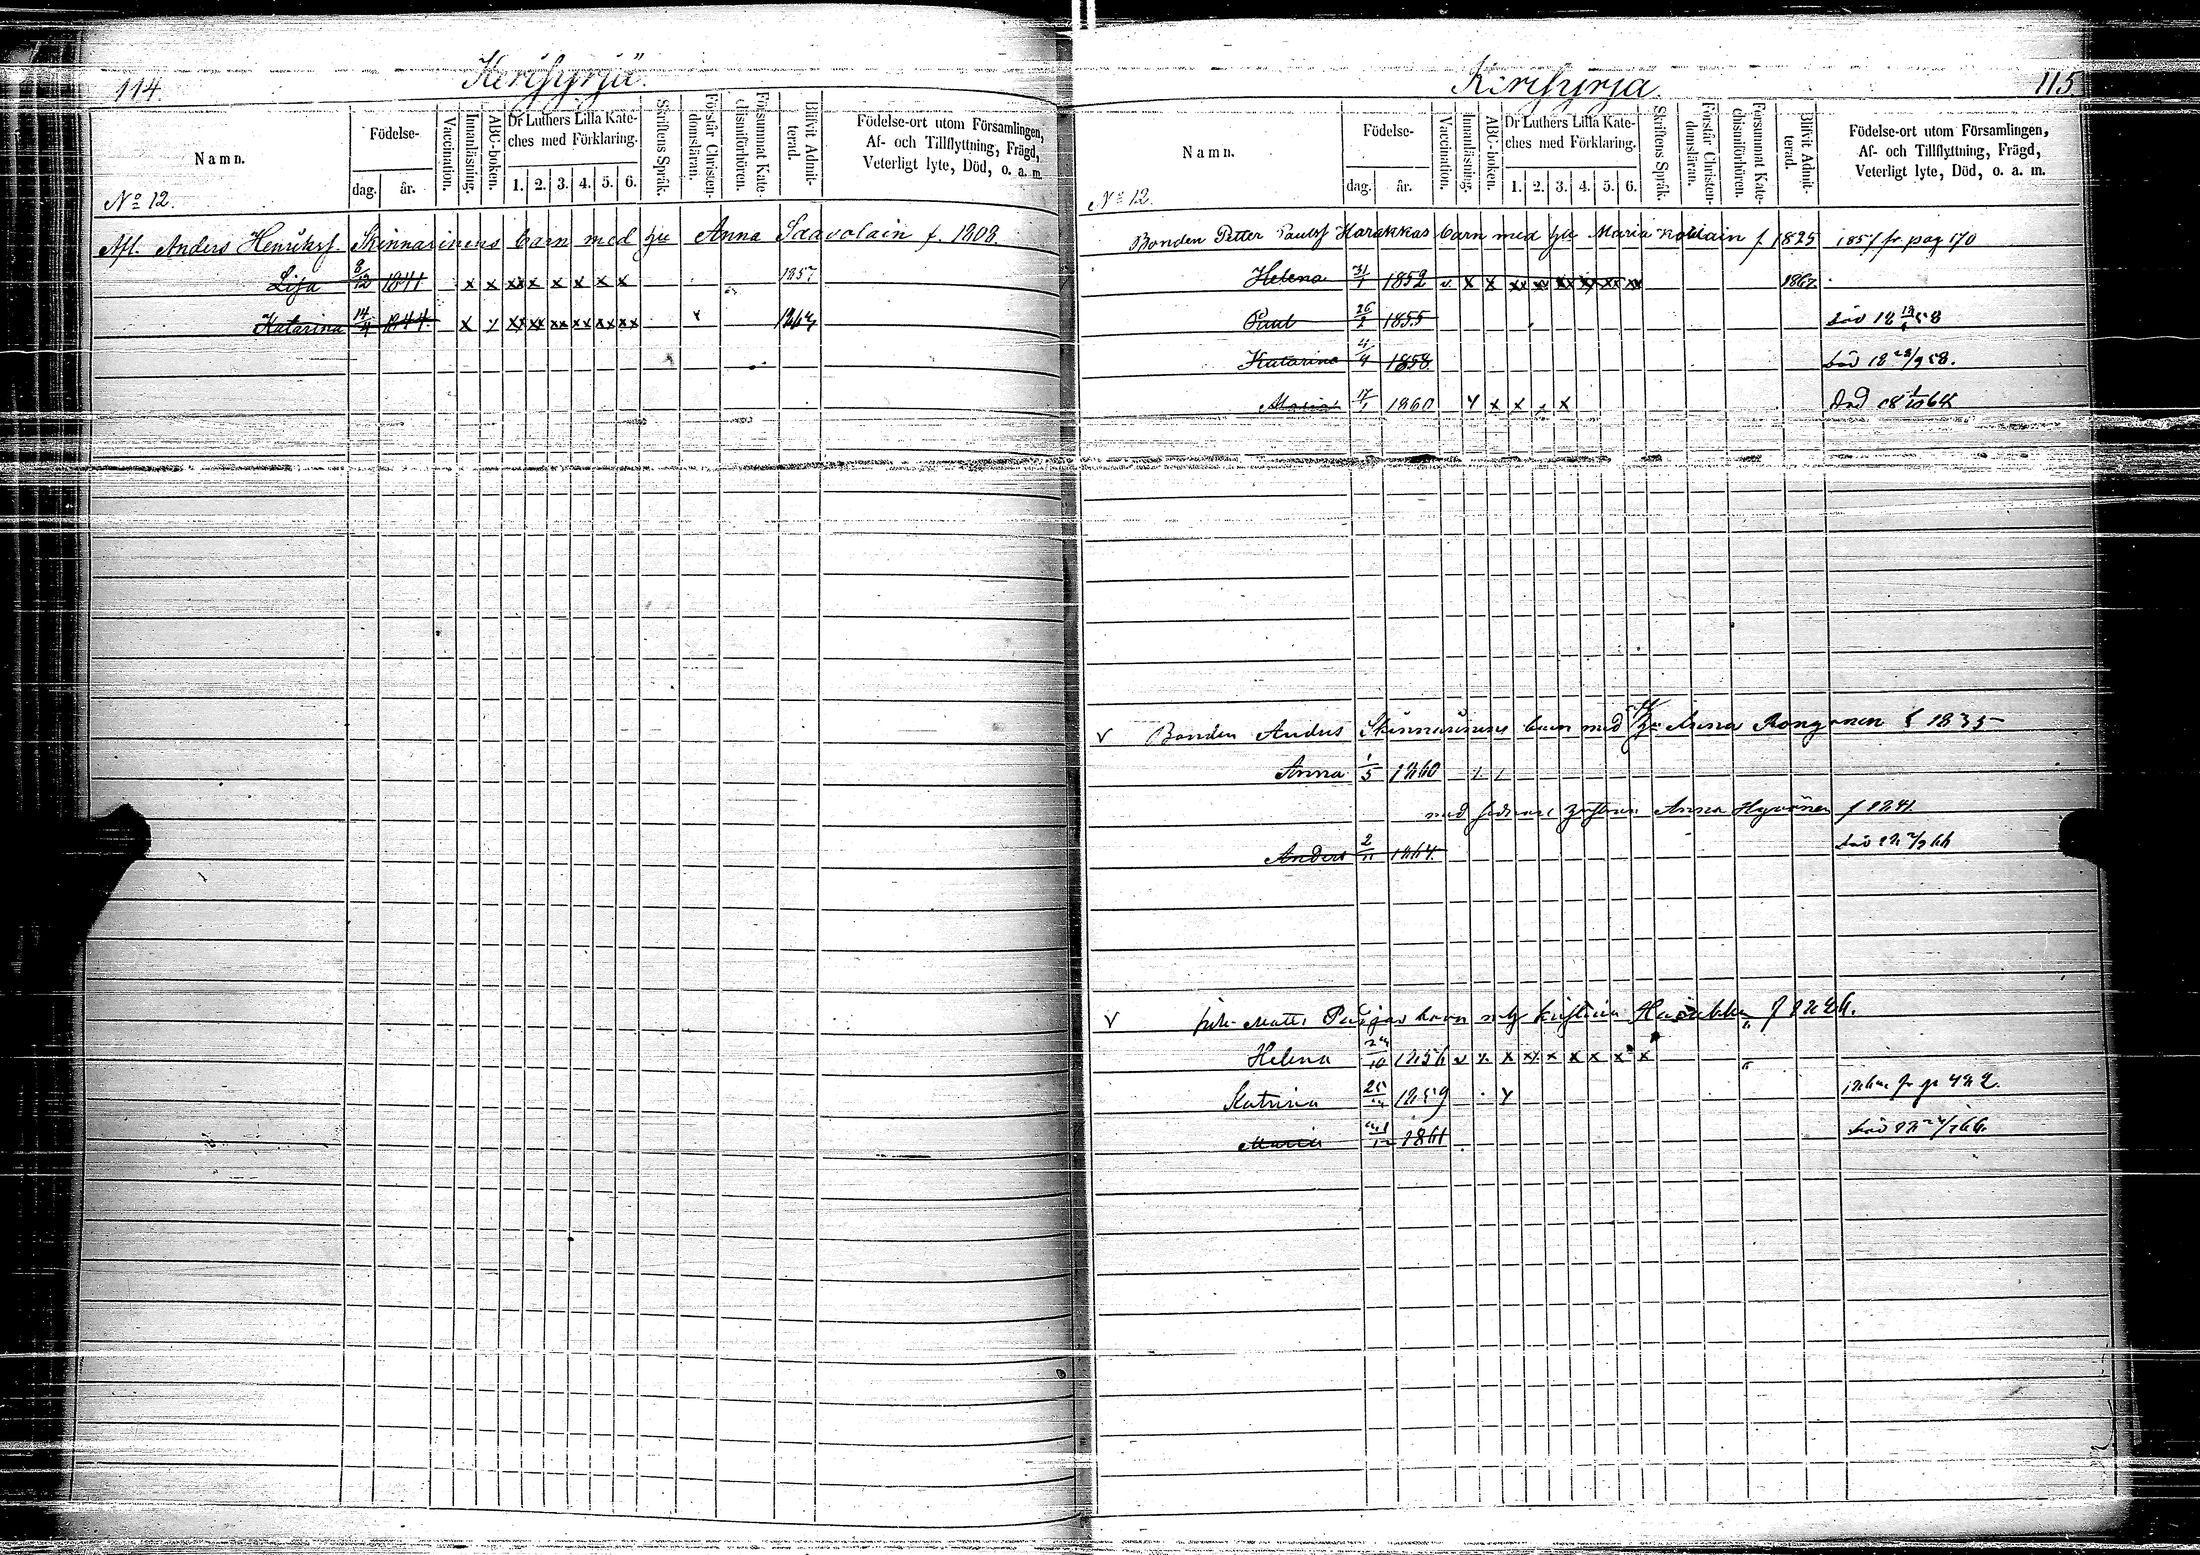 114.
Kerisyrjä.
Namn.
Födelse-
dag. år.
Vaccination.
Innanläsning.
ABC-boken.
Dr Luthers Lilla Kateches med Förklaring.
1. 2. 3. 4. 5. 6.
Skriftens Språk.
Förstår Christendomsläran.
Försummat Katechismiförhören.
Blifvit Admitterad.
Födelse-ort utom Församlingen,
Af- och Tillflyttning, Frägd,
Veterligt lyte, Död, o. a. m.
No 12.
Afl. Anders Henriksf. Skinnarinens barn med hu Anna Saavolain f. 1808.
Lisa 8/12 1841 x x xx x x x x x 1857
Katarina 14/4 1844 x y xx xx xx xx xx xx x
115
Kerisyrjä.
Namn.
Födelse-
dag. år.
Vaccination.
Innanläsning.
ABC-boken.
Dr Luthers Lilla Kateches med Förklaring.
1. 2. 3. 4. 5. 6.
Skriftens Språk.
Förstår Christendomsläran.
Försummat Katechismiförhören.
Blifvit Admitterad.
Födelse-ort utom Församlingen,
Af- och Tillflyttning, Frägd,
Veterligt lyte, Död, o. a. m.
No 12.
Bonden Petter Paulsf Harakkas barn med hu Maria f. 1825 1857 fr. pag 170
Helena 31/1 1852 v x x xx xx xx xx xx xx 1867
Paul 26/1 1855 död 18 58
Katarina 4/4 1858 död 18 28/9 58.
Maria 17/1 1860 y x x x x Död 18 64
v Bonden Anders Skinnarinens barn med hu Anna Rongonen f 1835
Anna 1/5 1860
med sednare hustrun Anna Hyvönen f 1841
Anders 2/11 1864 död 66
v Matts barn Kristina Harakka
Helena 10 1856 v x x x x x x x x
Katrina 25 1859 y
Maria 1861 död 66